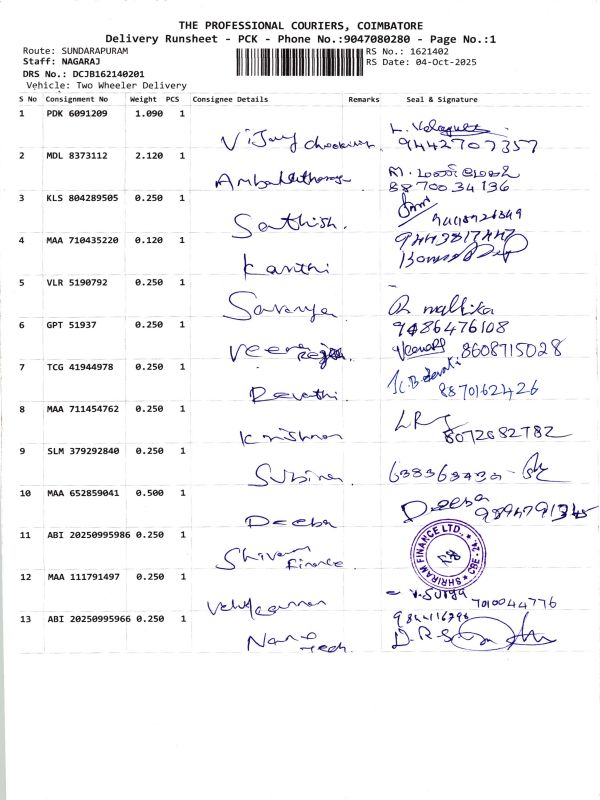 THE PROFESSIONAL COURIERS, COIMBATORE
Delivery Runsheet - PCK - Phone No.:9047080280 - Page No.:1
Route: SUNDARAPURAM RS No.: 1621402
Staff: NAGARAJ RS Date: 04-Oct-2025
DRS No.: DCJB162140201
Vehicle: Two Wheeler Delivery
S No Consignment No Weight PCS Consignee Details Remarks Seal & Signature
1 PDK 6091209 1.090 1
Vijay 9442707357
2 MDL 8373112 2.120 1
8870034136
3 KLS 804289505 0.250 1
Sathish.
4 MAA 710435220 0.120 1
Kanthi
5 VLR 5190792 0.250 1
Saranya R mallika
6 GPT 51937 0.250 1 9486476108
Veena 8608715028
7 TCG 41944978 0.250 1
Revathi. 8870162426
8 MAA 711454762 0.250 1
Krishnan 8072682782
9 SLM 379292840 0.250 1
Subina.
10 MAA 652859041 0.500 1
Deeba Deeba
11 ABI 20250995986 0.250 1
Shriram Finance SHRIRAM FINANCE LTD. * CBE-24. *
12 MAA 111791497 0.250 1
V. Surya 7010044776
13 ABI 20250995966 0.250 1
Nano Tech.